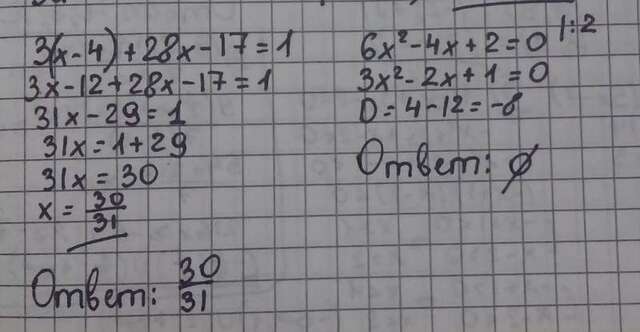 3(x-4)+28x-17=1
3x-12+28x-17=1
31x-29=1
31x=1+29
31x=30
x=30/31
Ответ: 30/31
6x²-4x+2=0 |:2
3x²-2x+1=0
D=4-12=-8
Ответ: ∅